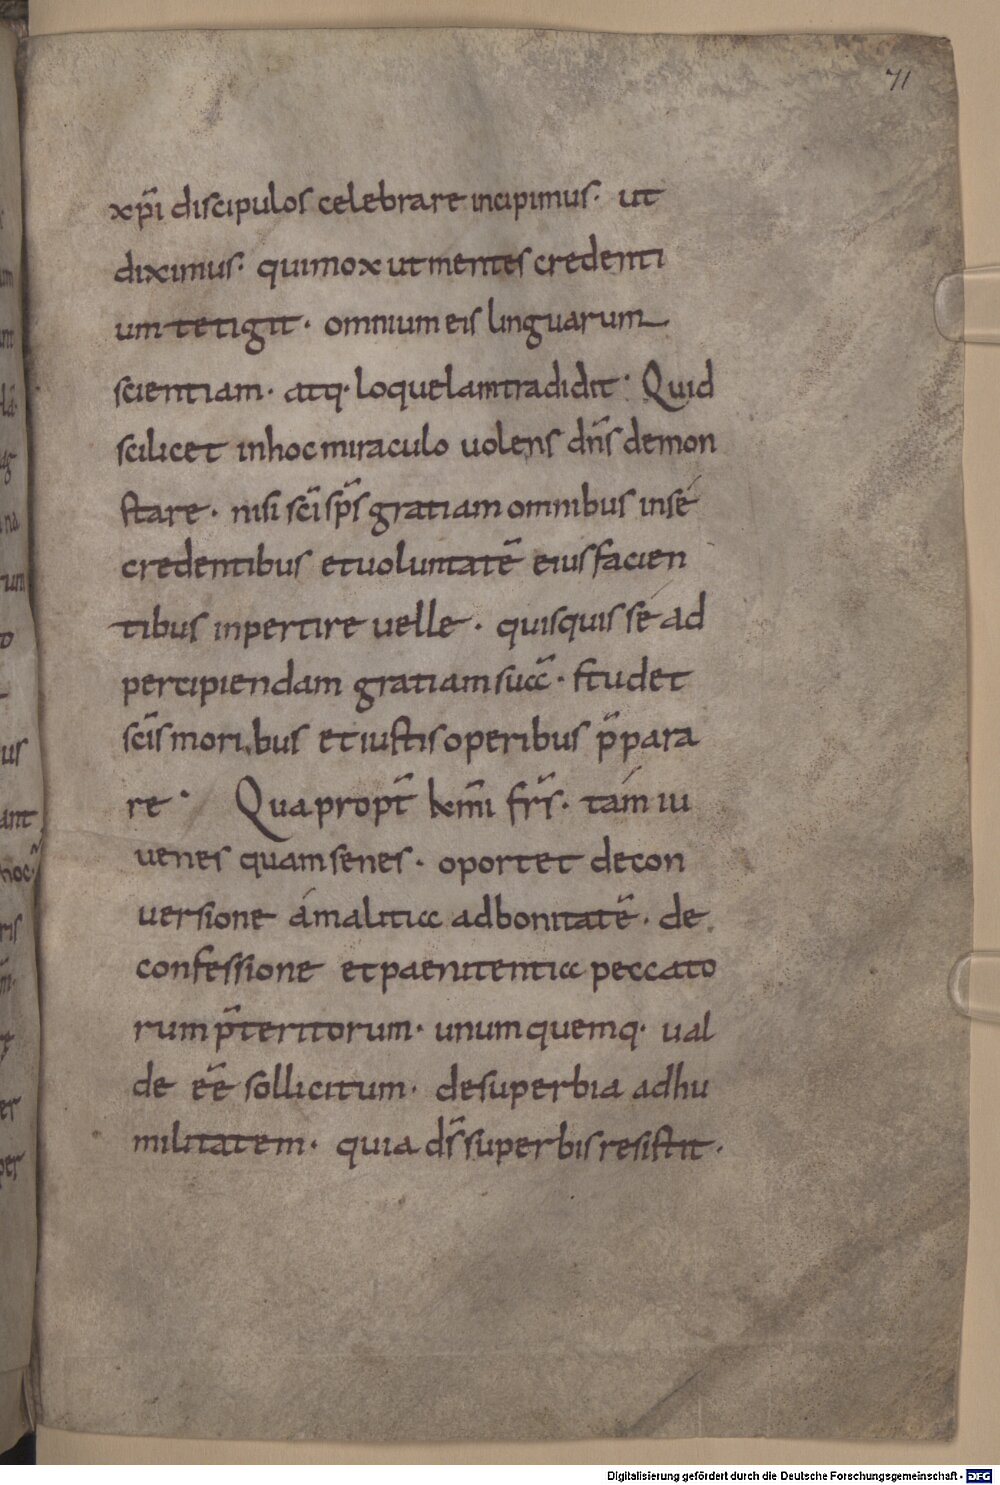 71
xp̄i discipulos celebrare incipimus· ut
diximus· qui mox ut mentes credenti
um tetigit· omnium eis linguarum
scientiam· atq· loquelam tradidit· Quid
scilicet in hoc miraculo uolens dn̄s demon
stare· nisi sc̄i sp̄s gratiam omnibus in sé
credentibus et uoluntatē eius facien
tibus inpertire uelle· quisquis sé ad
percipiendam gratiam suā· studet
sc̄is moribus et iustis operibus p̄para
re· Quapropt̄ km̄i frs̄· tám iu
uenes quam senes· oportet de con
uersione á malitia ad bonitatē· de
confessione et paenitentia peccato
rum p̄teritorum· unum quemq· ual
de eē sollicitum· de superbia ad hu
militatem· quia ds̄ superbis resistit·
Digitalisierung gefördert durch die Deutsche Forschungsgemeinschaft - DFG